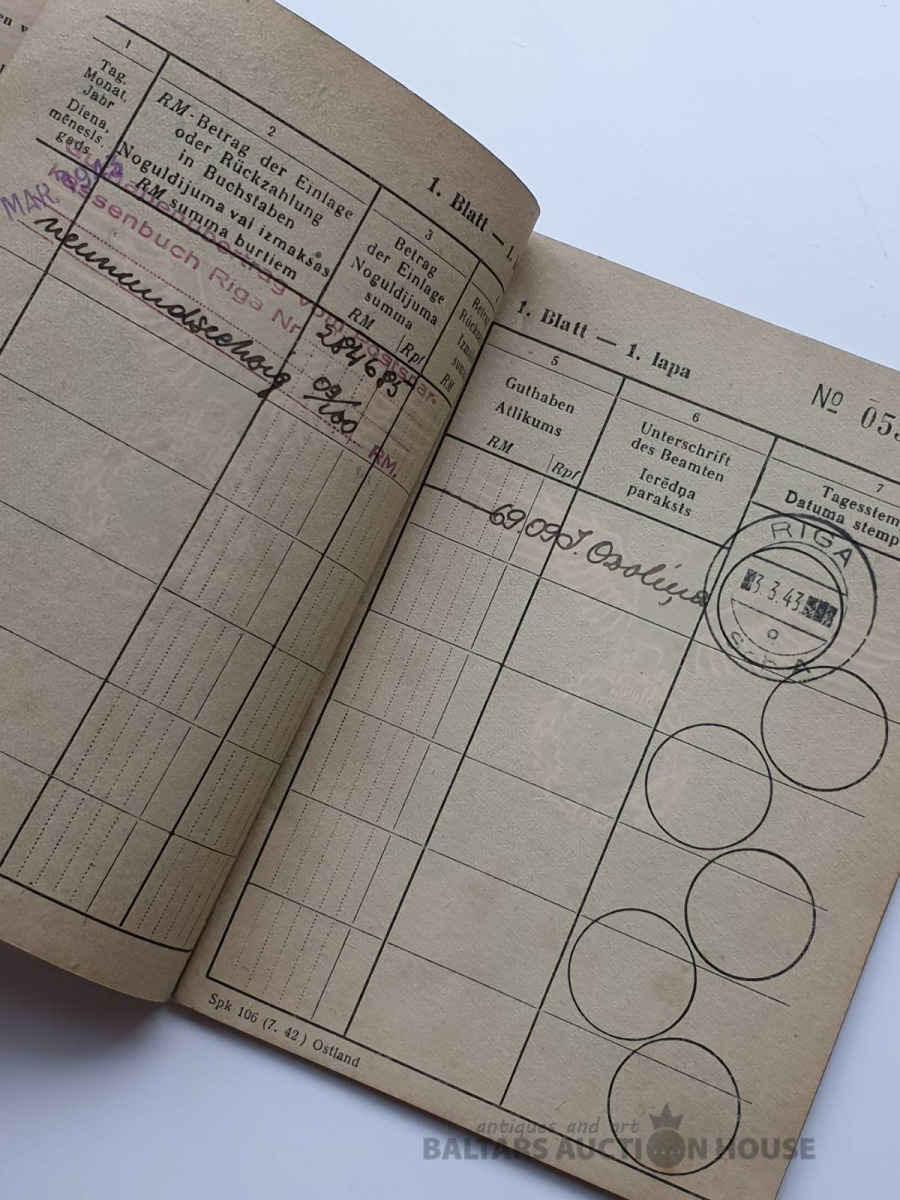 1
Tag,
Monat,
Jahr
Diena,
mēnesis,
gads
2
RM-Betrag der Einlage
oder Rückzahlung
in Buchstaben
Noguldījuma vai izmaksas
RM summa burtiem
1. Blatt — 1.
3
Betrag
der Einlage
Noguldījuma
summa
RM
Rpf
RM
MAR. 1943
kassenbuch Riga Nr
284685
neunundsechzig 09/100 RM.
1. Blatt — 1. lapa
№ 05
5
Guthaben
Atlikums
RM
Rpf
6
Unterschrift
des Beamten
Ierēdņa
paraksts
7
Tagesstem
Datuma stemp
69.09 J. Osoliņa
RIGA
3.3.43
Spk 106 (7. 42) Ostland
antiques and art
BALTARS AUCTION HOUSE